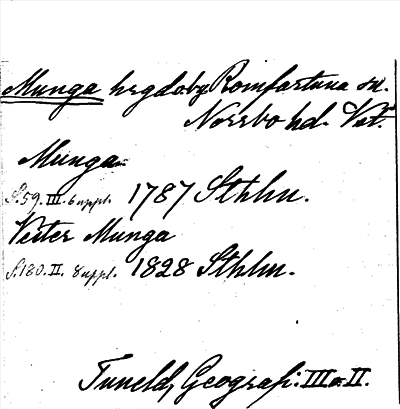 Munga hrgdoby Romfartuna sn.
Norrbo hd. Vstm.
Munga
S.59. III. 6 uppl. 1787 Sthlm.
Vester Munga
S.180. II. 8 uppl. 1828 Sthlm.
Tuneld, Geografi. III o. II.